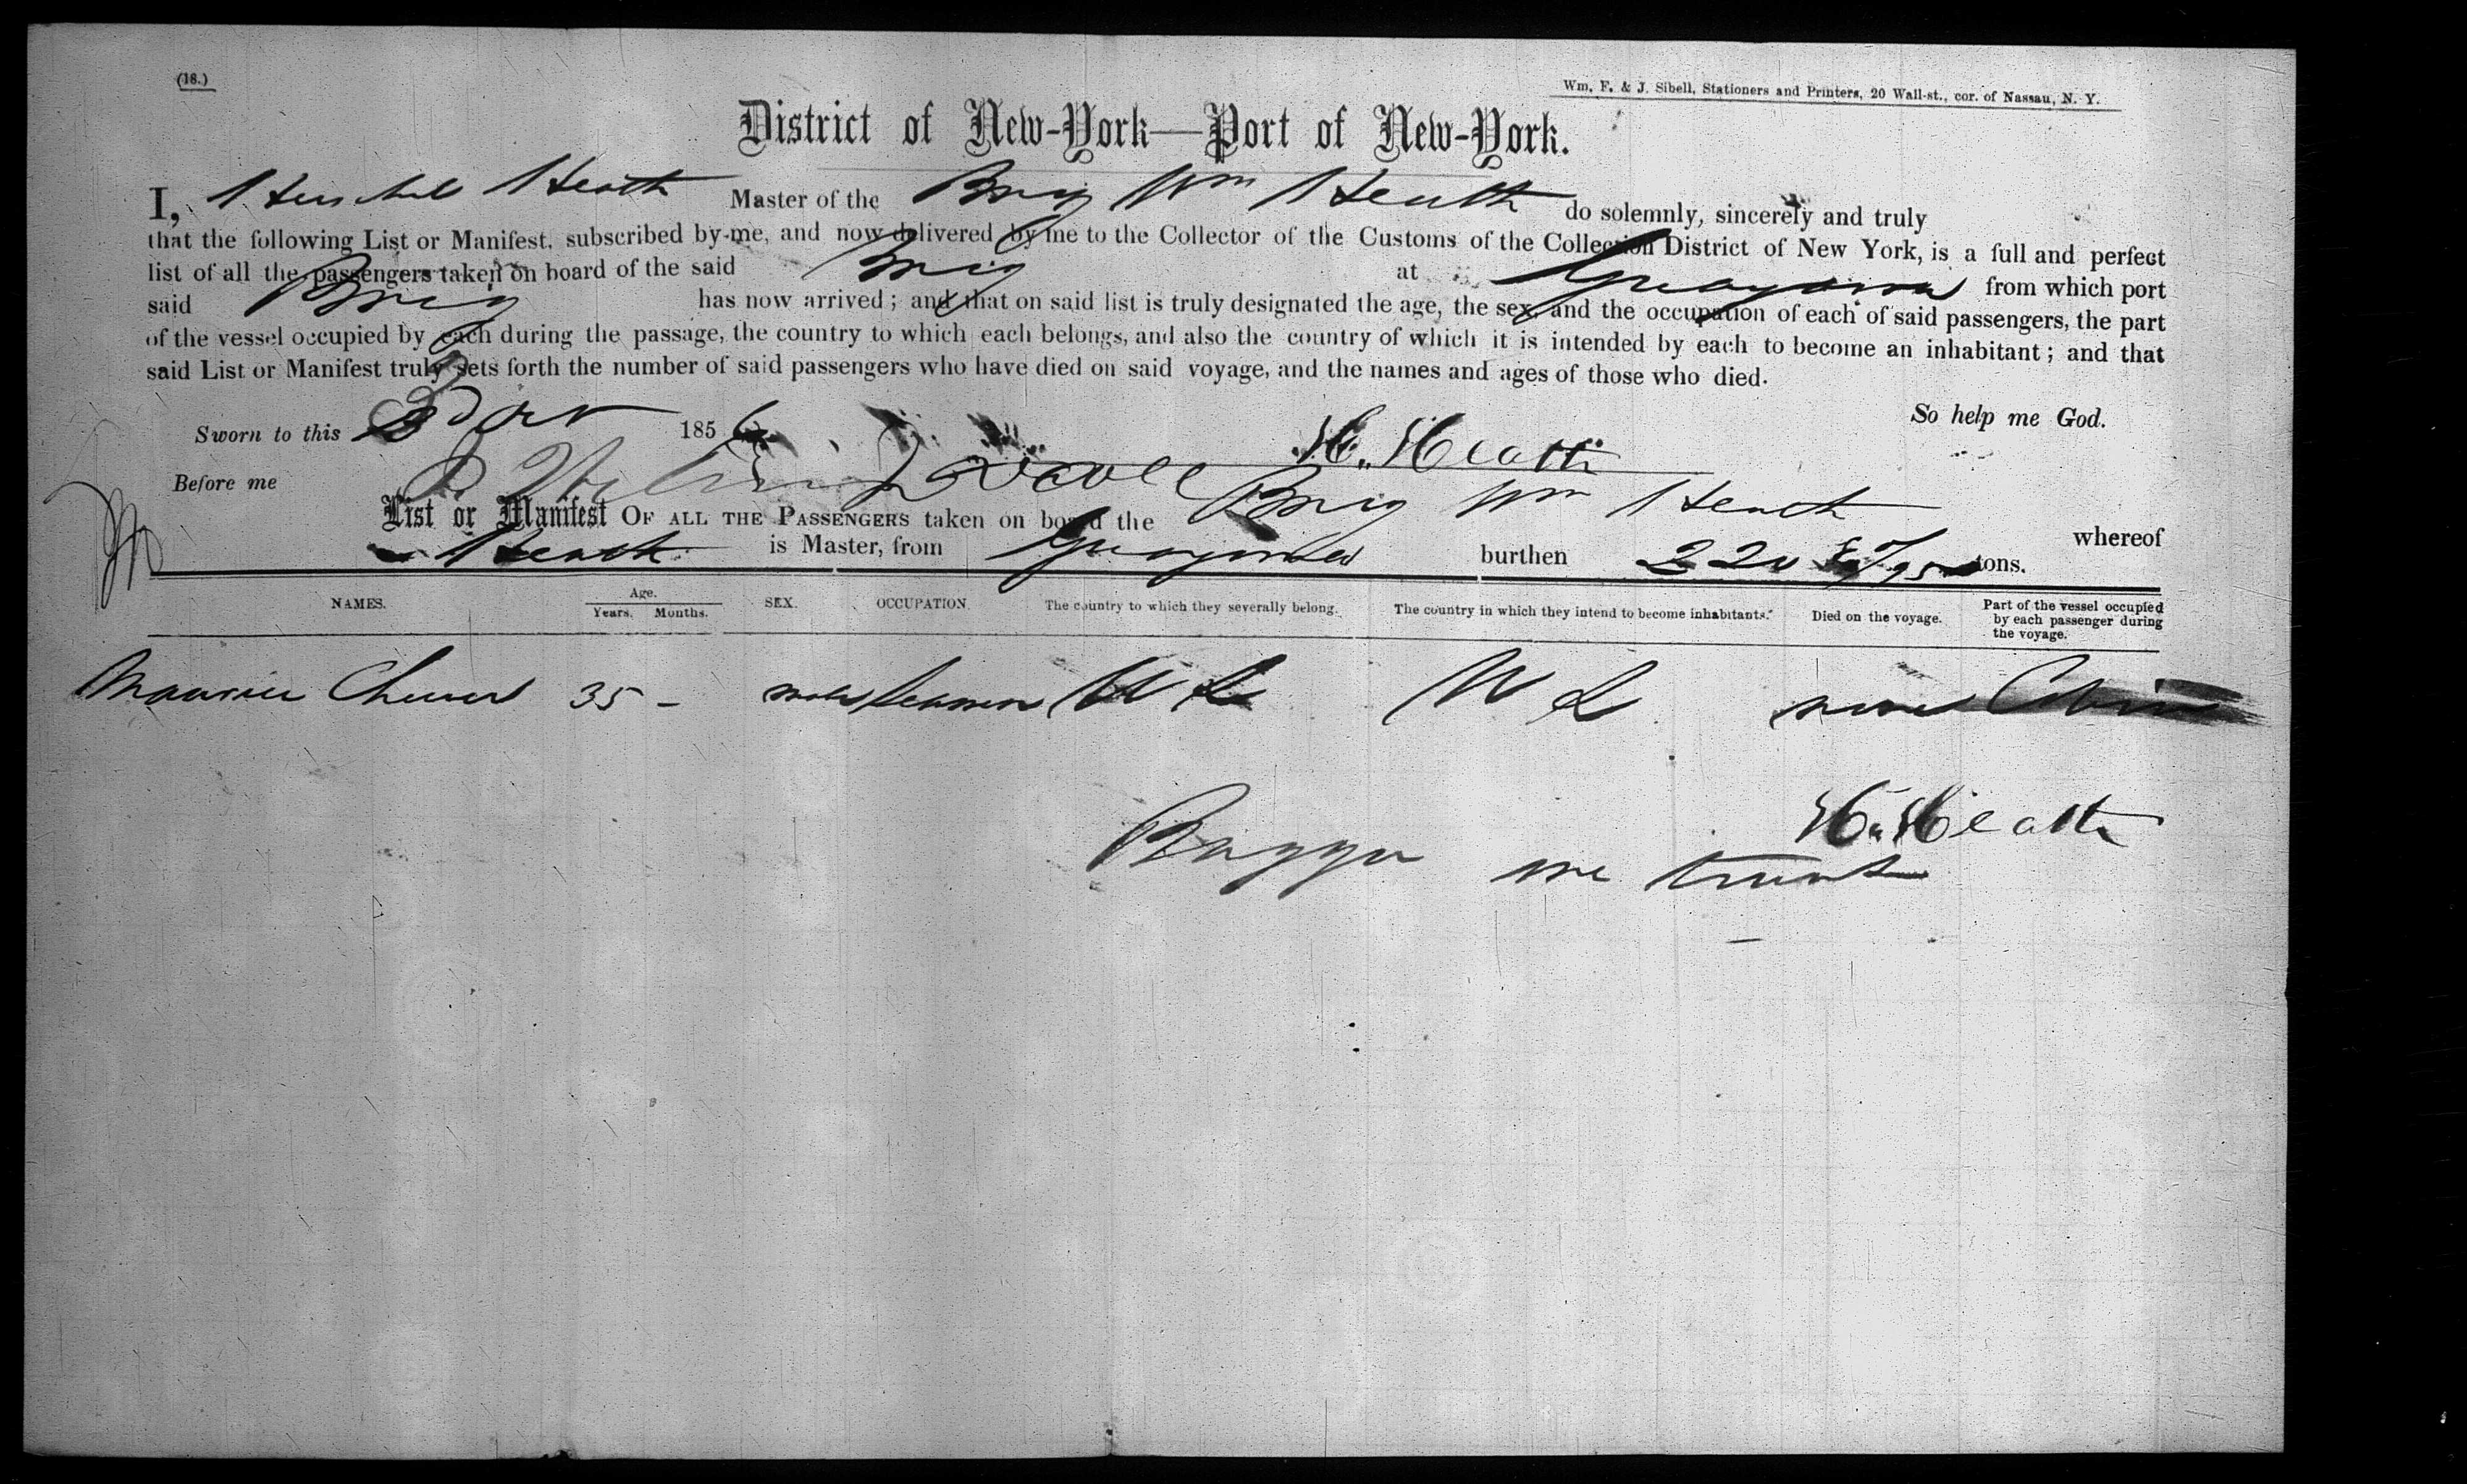 (18.)
Wm. F. & J. Sibell, Stationers and Printers, 20 Wall-st., cor. of Nassau, N. Y.
District of New-York—Port of New-York.
I, Heath Master of the Brig Wm Heath do solemnly, sincerely and truly
that the following List or Manifest, subscribed by me, and now delivered by me to the Collector of the Customs of the Collection District of New York, is a full and perfect
list of all the passengers taken on board of the said Brig at from which port
said Brig has now arrived; and that on said list is truly designated the age, the sex, and the occupation of each of said passengers, the part
of the vessel occupied by each during the passage, the country to which each belongs, and also the country of which it is intended by each to become an inhabitant; and that
said List or Manifest truly sets forth the number of said passengers who have died on said voyage, and the names and ages of those who died.
So help me God.
Sworn to this 1856
H. Heath
Before me
List or Manifest OF ALL THE PASSENGERS taken on board the Brig Wm Heath whereof
Heath is Master, from burthen 220 tons.
NAMES. Age. Years. Months. SEX. OCCUPATION. The country to which they severally belong. The country in which they intend to become inhabitants. Died on the voyage. Part of the vessel occupied by each passenger during the voyage.
35 - male Seaman U S U S none Cabin
H. Heath
one trunk